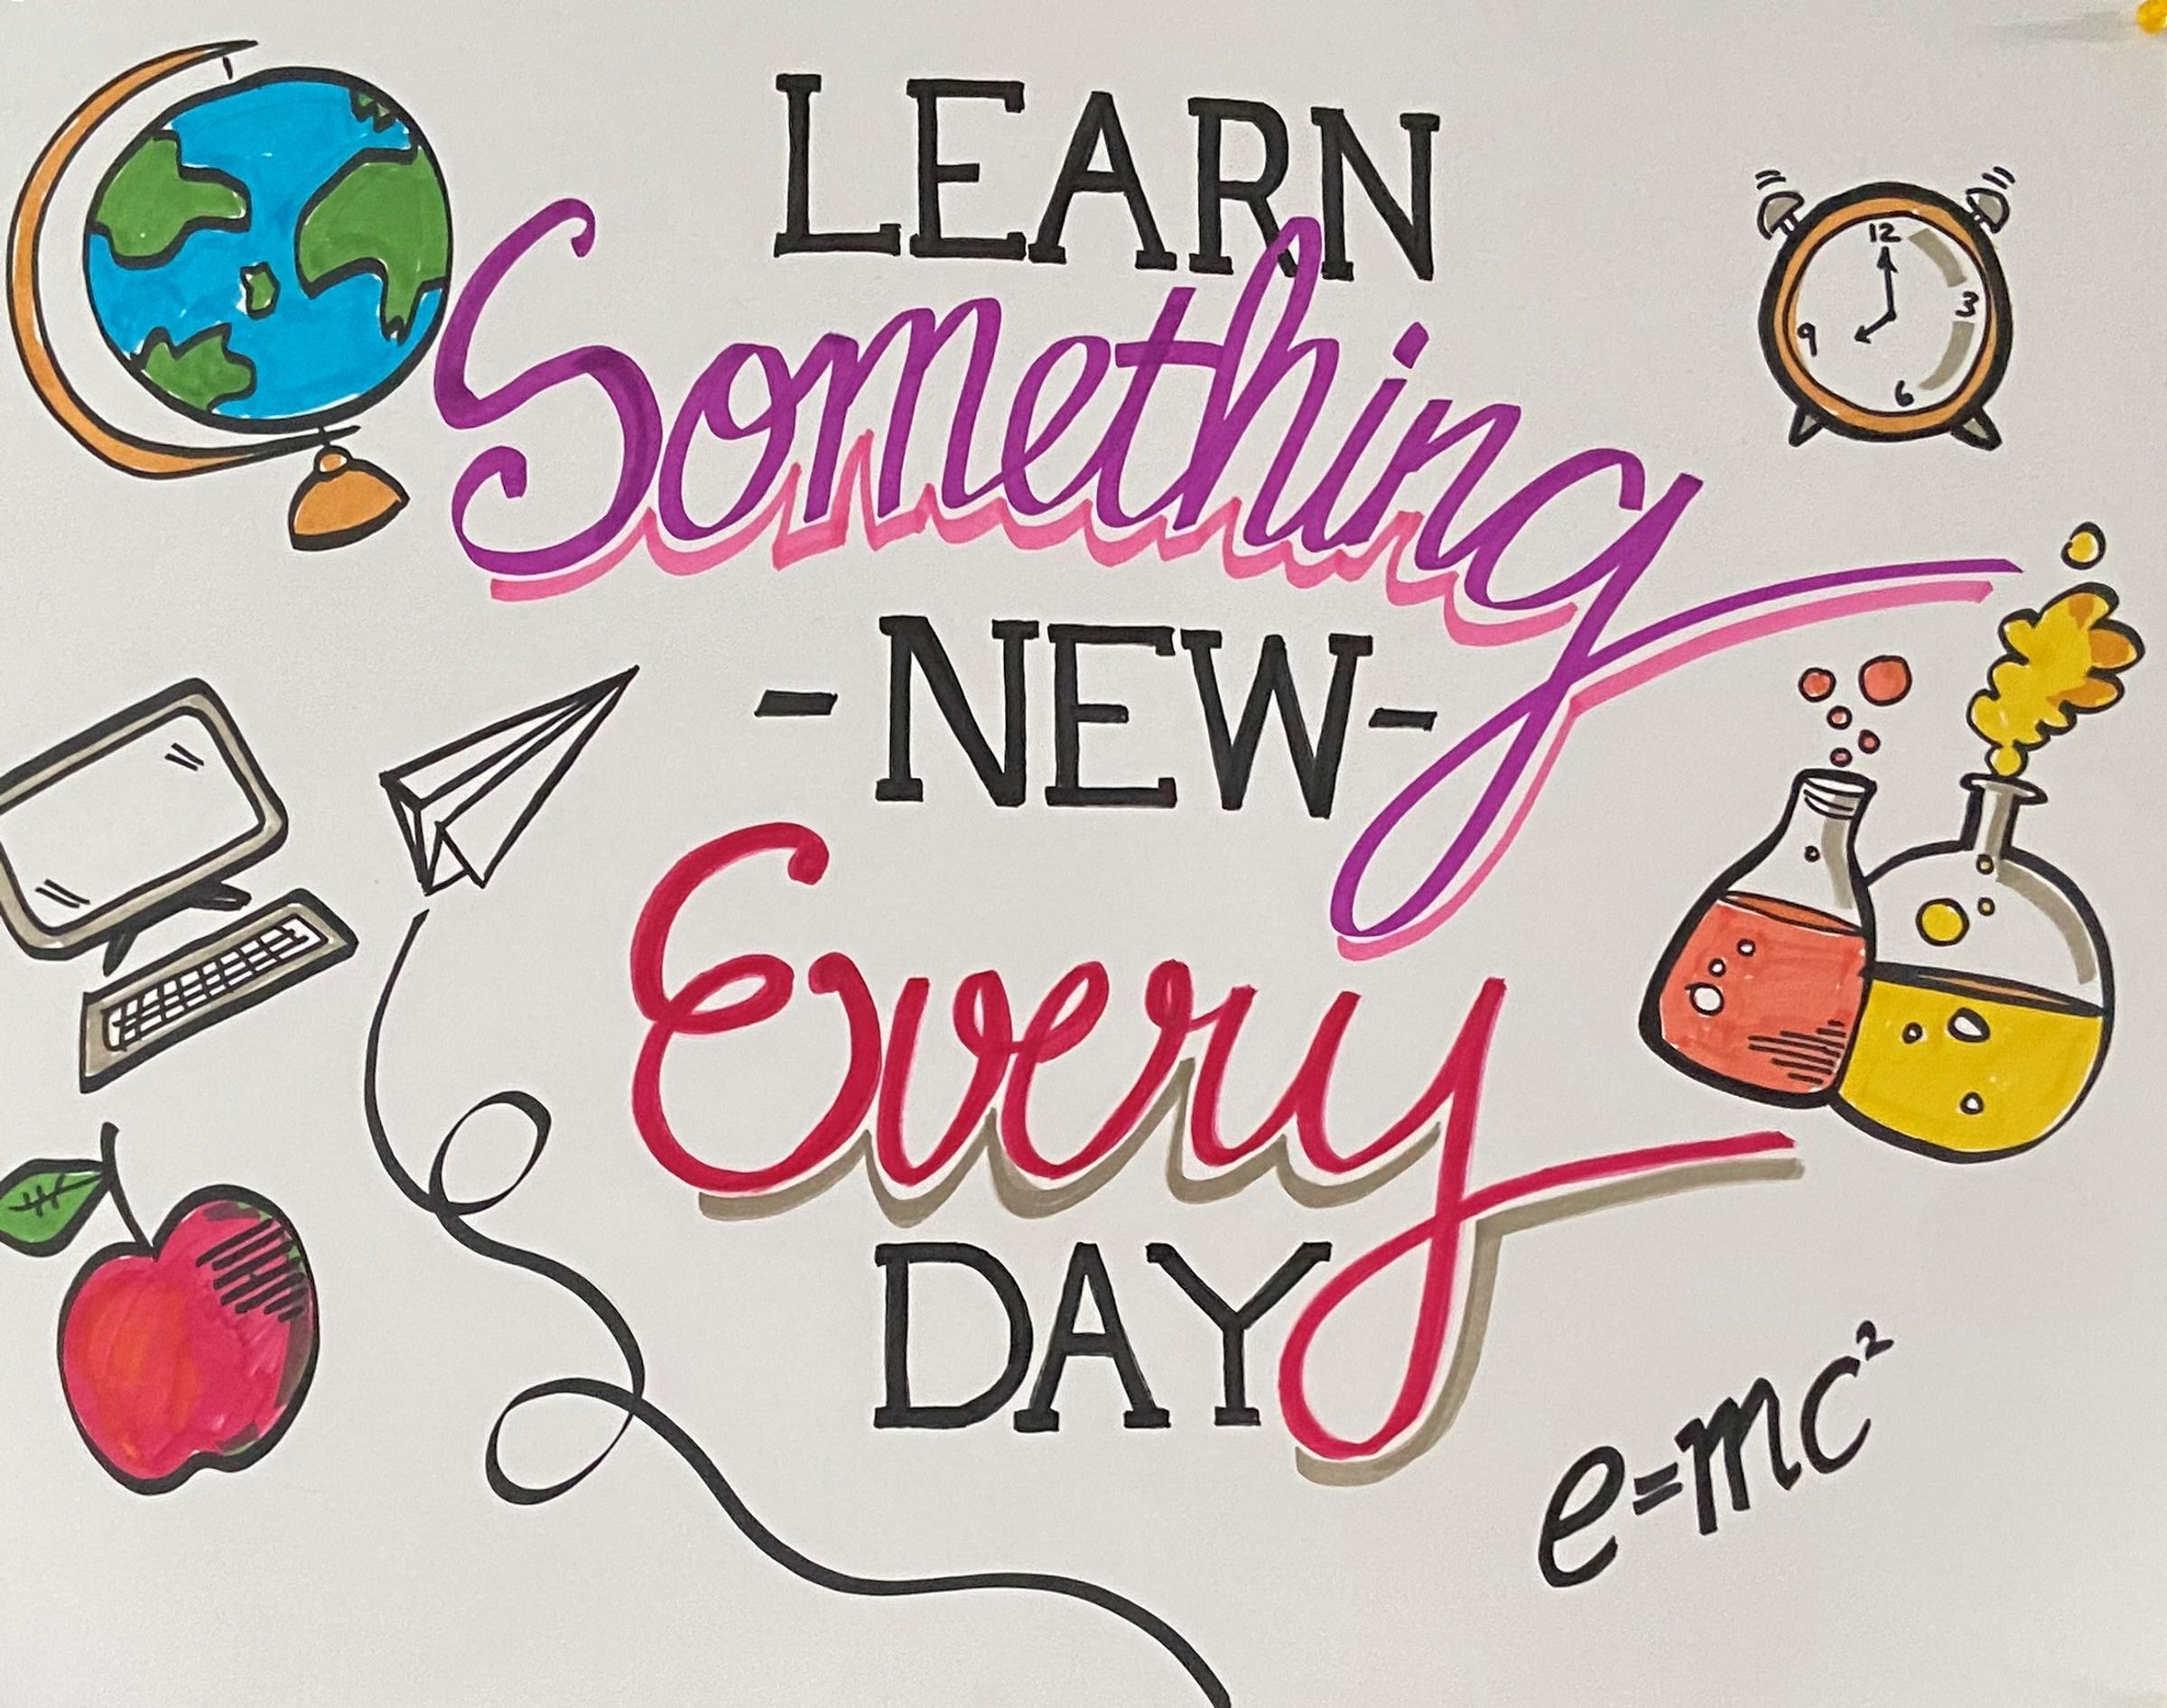 LEARN
Something
-NEW-
Every
DAY
12
3
9
6
e=mc²